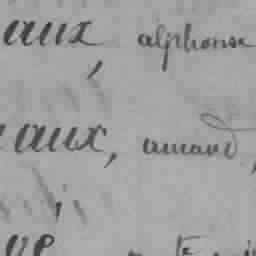 aux, alphonse
aux, amand,